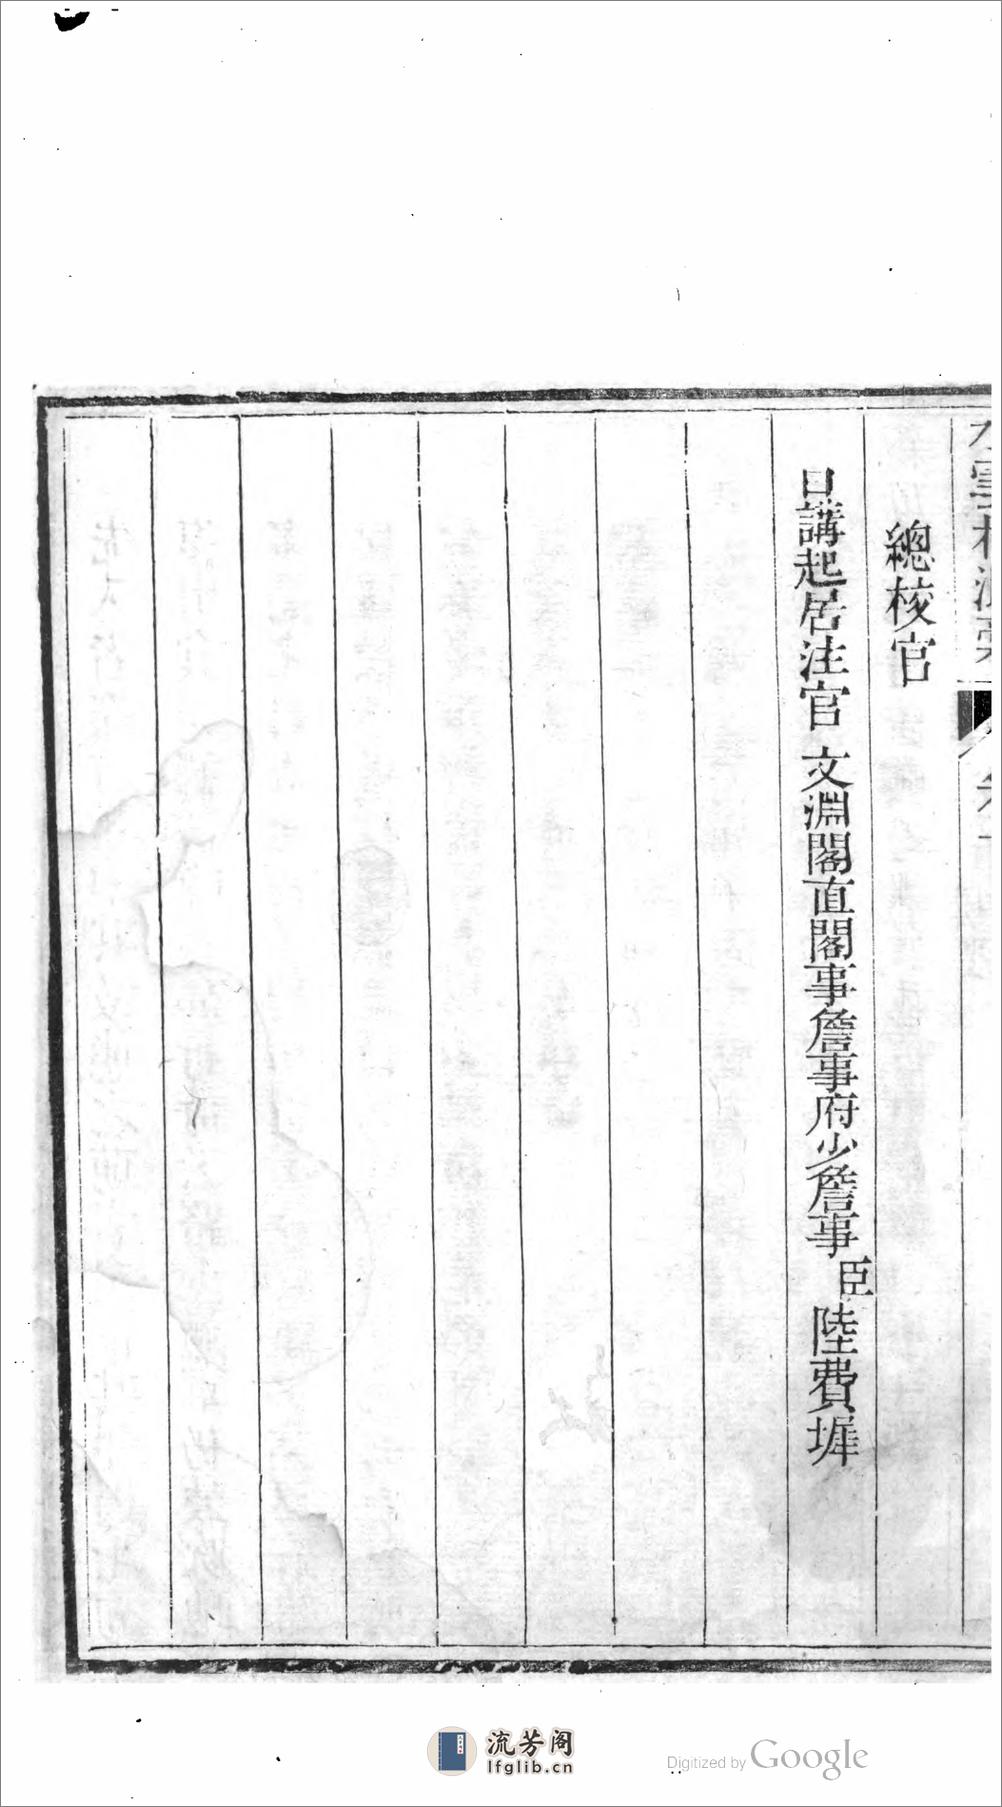 總核官
日講起居注官 文淵閣直閣事詹事府少詹事臣陸費墀
流芳阁
lfglib.cn
Digitized by Google